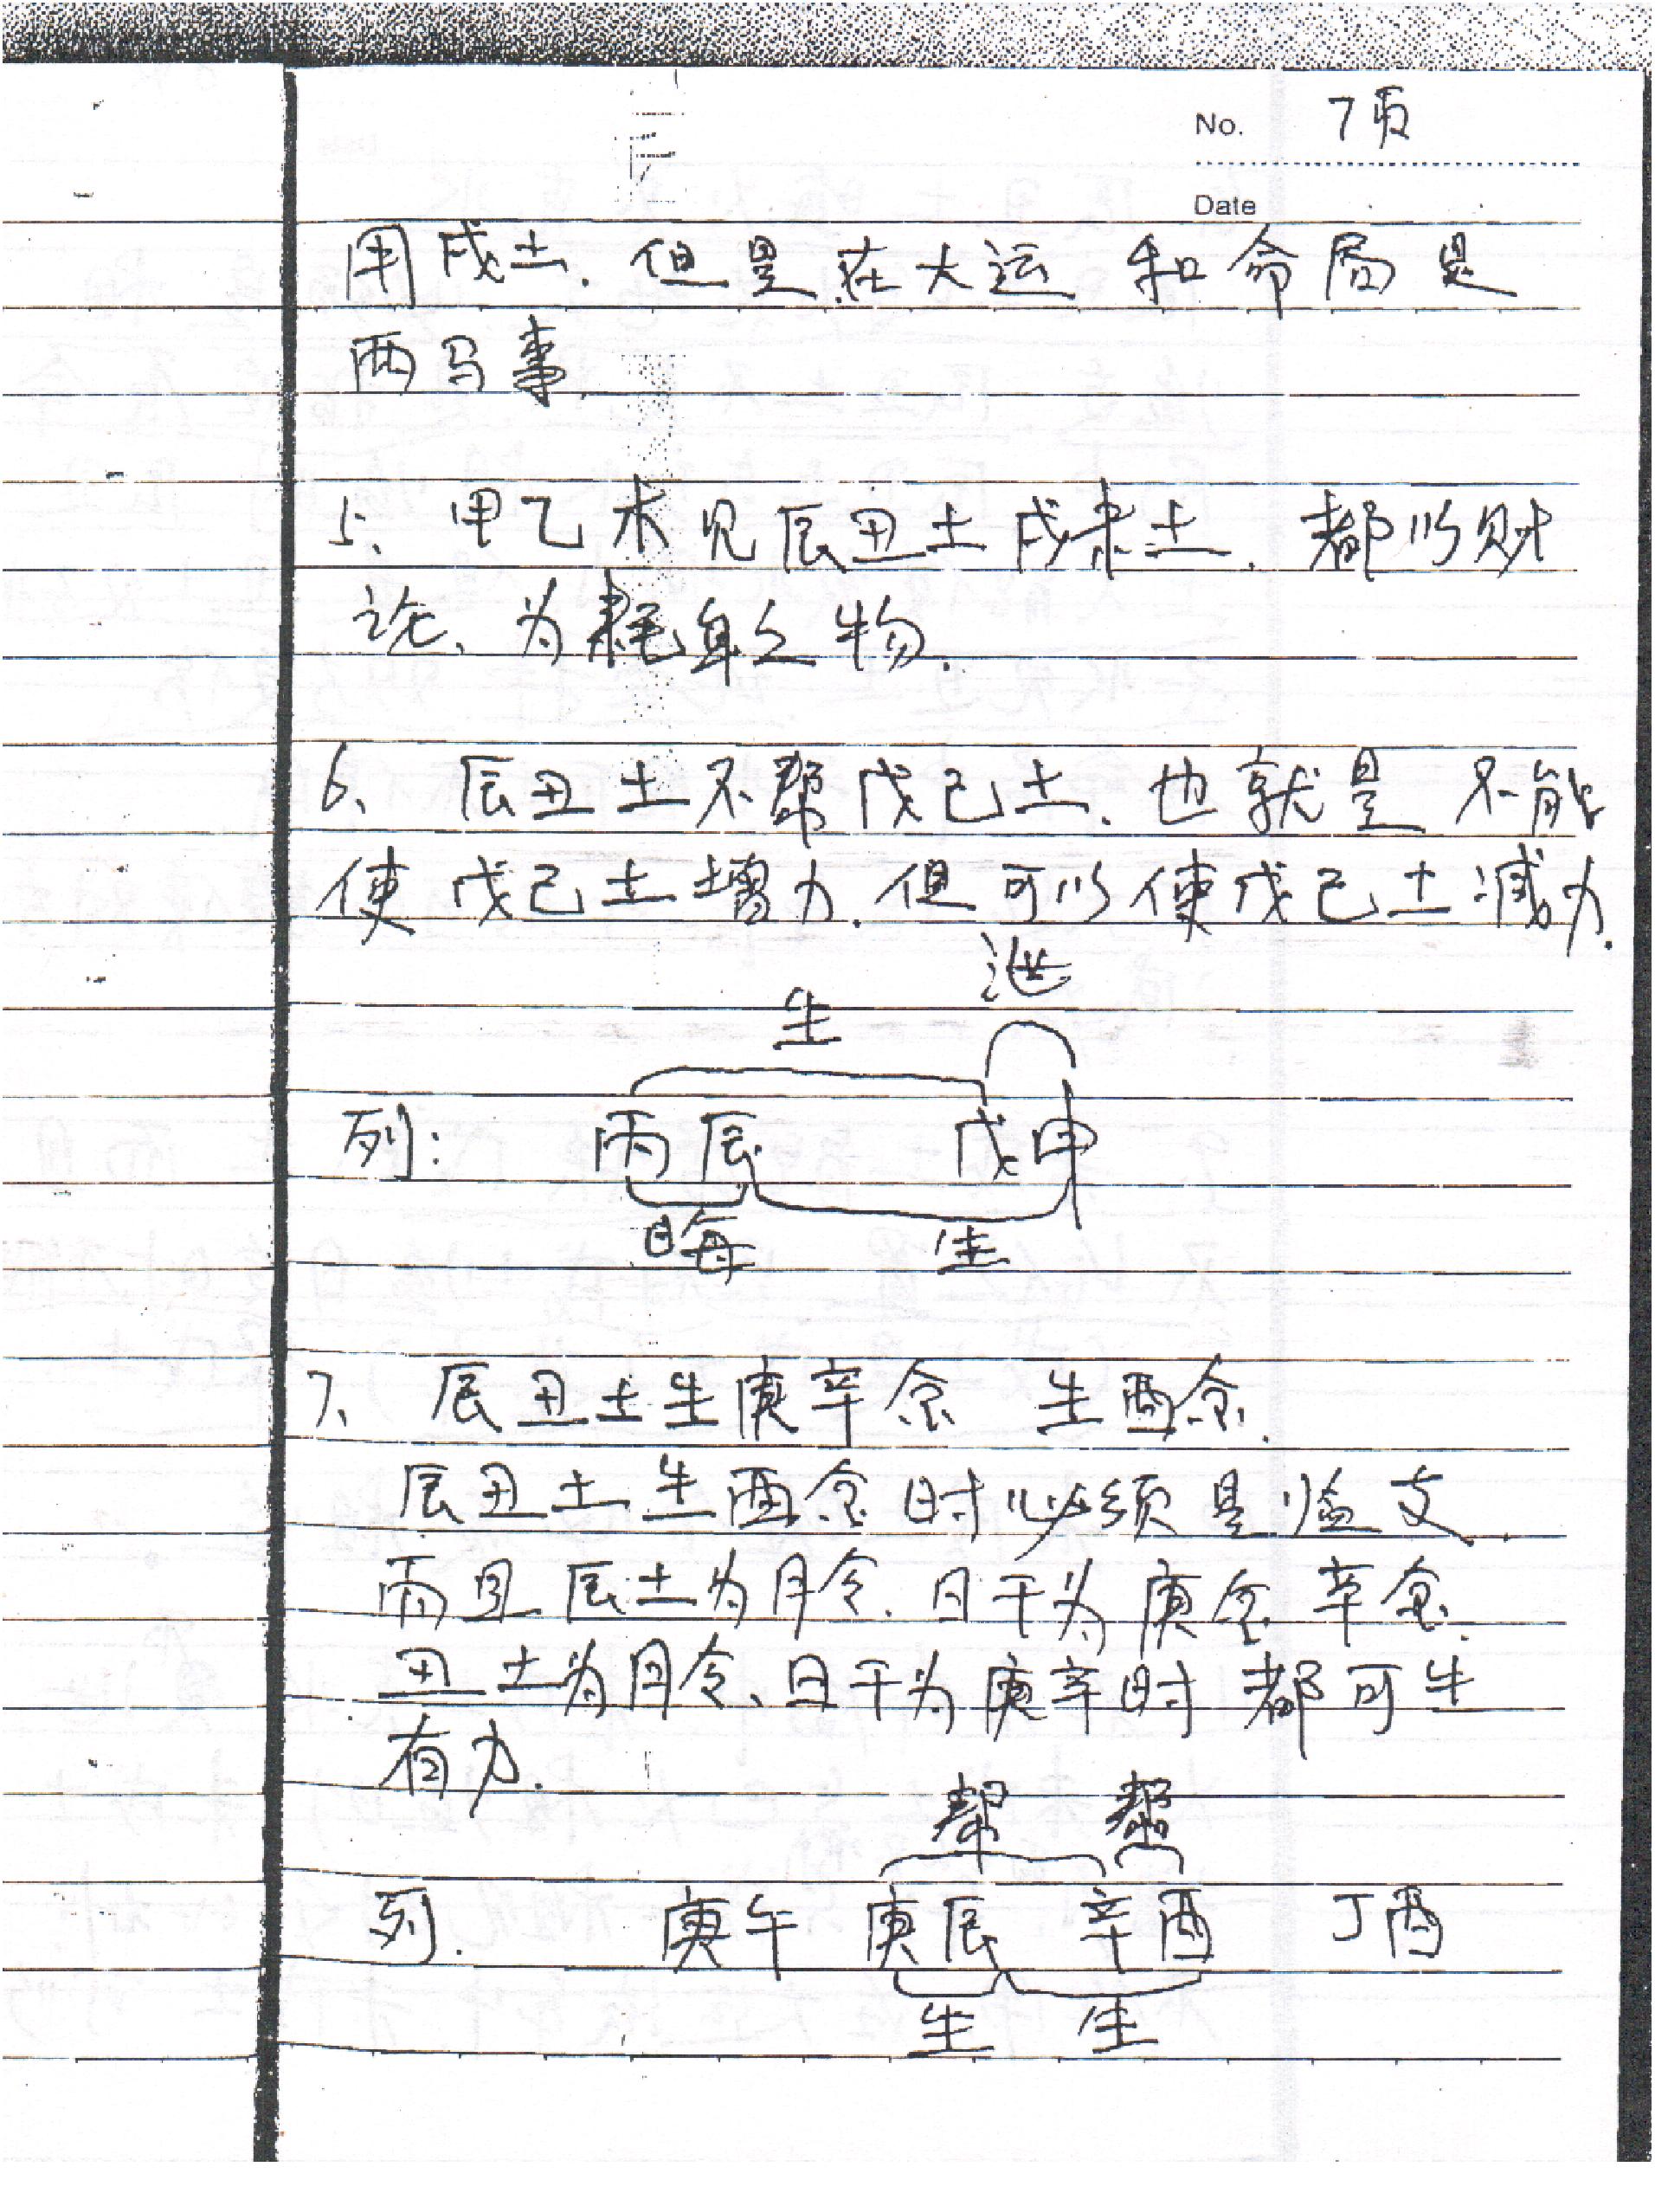 No. 7页
Date
用戌土. 但是在大运 和命局是
两马事
5、甲乙木见辰丑土戌未土. 都以财
论、为耗身之物.
6、辰丑土不帮戊己土. 也就是不能
使戊己土增力. 但可以使戊己土减力.
泄
生
列: 丙辰 戊申
晦 生
7、辰丑土生庚辛金 生酉金.
辰丑土生酉金时必须是临支.
而且辰土为月令. 日干为庚金辛金.
丑土为月令、日干为庚辛时都可生
有力.
帮 帮
列. 庚午 庚辰 辛酉 丁酉
生 生